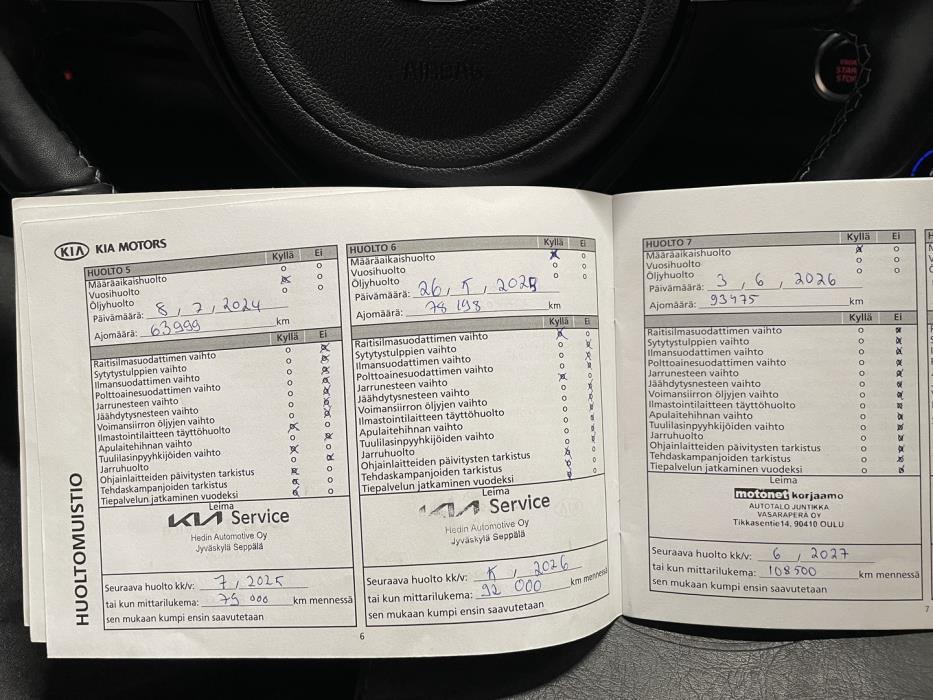 AIRBAG
START
STOP
KIA KIA MOTORS
HUOLTOMUISTIO
HUOLTO 5 Kyllä Ei
Määräaikaishuolto
Vuosihuolto
Öljyhuolto
Päivämäärä: 8, 7, 2024
Ajomäärä: 63999 km
Kyllä Ei
Raitisilmasuodattimen vaihto
Sytytystulppien vaihto
Ilmansuodattimen vaihto
Polttoainesuodattimen vaihto
Jarrunesteen vaihto
Jäähdytysnesteen vaihto
Voimansiirron öljyjen vaihto
Ilmastointilaitteen täyttöhuolto
Apulaitehihnan vaihto
Tuulilasinpyyhkijöiden vaihto
Jarruhuolto
Ohjainlaitteiden päivitysten tarkistus
Tehdaskampanjoiden tarkistus
Tiepalvelun jatkaminen vuodeksi
Leima
KIA Service
Hedin Automotive Oy
Jyväskylä Seppälä
Seuraava huolto kk/v: 7, 2025
tai kun mittarilukema: 79 000 km mennessä
sen mukaan kumpi ensin saavutetaan
HUOLTO 6 Kyllä Ei
Määräaikaishuolto
Vuosihuolto
Öljyhuolto
Päivämäärä: 26, 5, 2025
Ajomäärä: 78 198 km
Kyllä Ei
Raitisilmasuodattimen vaihto
Sytytystulppien vaihto
Ilmansuodattimen vaihto
Polttoainesuodattimen vaihto
Jarrunesteen vaihto
Jäähdytysnesteen vaihto
Voimansiirron öljyjen vaihto
Ilmastointilaitteen täyttöhuolto
Apulaitehihnan vaihto
Tuulilasinpyyhkijöiden vaihto
Jarruhuolto
Ohjainlaitteiden päivitysten tarkistus
Tehdaskampanjoiden tarkistus
Tiepalvelun jatkaminen vuodeksi
Leima
KIA Service
Hedin Automotive Oy
Jyväskylä Seppälä
Seuraava huolto kk/v: 5, 2026
tai kun mittarilukema: 92 000 km mennessä
sen mukaan kumpi ensin saavutetaan
6
HUOLTO 7 Kyllä Ei
Määräaikaishuolto
Vuosihuolto
Öljyhuolto
Päivämäärä: 3, 6, 2026
Ajomäärä: 93475 km
Kyllä Ei
Raitisilmasuodattimen vaihto
Sytytystulppien vaihto
Ilmansuodattimen vaihto
Polttoainesuodattimen vaihto
Jarrunesteen vaihto
Jäähdytysnesteen vaihto
Voimansiirron öljyjen vaihto
Ilmastointilaitteen täyttöhuolto
Apulaitehihnan vaihto
Tuulilasinpyyhkijöiden vaihto
Jarruhuolto
Ohjainlaitteiden päivitysten tarkistus
Tehdaskampanjoiden tarkistus
Tiepalvelun jatkaminen vuodeksi
Leima
motonet korjaamo
AUTOTALO JUNTIKKA
VASARAPERÄ OY
Tikkasentie 14, 90410 OULU
Seuraava huolto kk/v: 6, 2027
tai kun mittarilukema: 108500 km mennessä
sen mukaan kumpi ensin saavutetaan
7